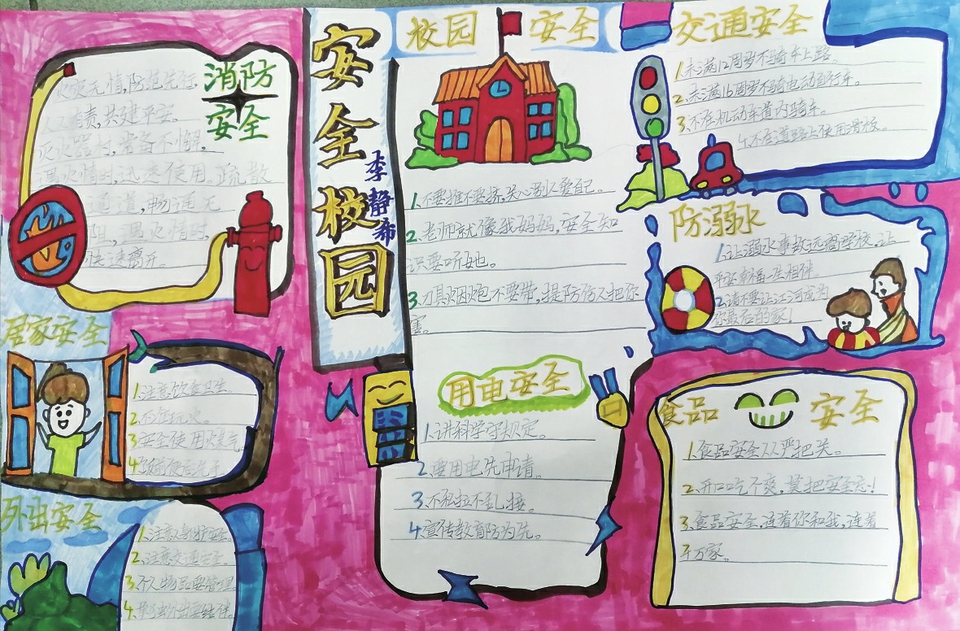 安全校园
李静希
消防
安全
火灾无情,防范先行,
责,共建平安。
常备不懈,
使用疏散
火情时,
快速离开。
居家安全
1.注意饮食卫生
2.不能玩火。
3.安全使用火与气
外出安全
1.注意身体安全
2.注意交通安全。
校园 安全
1.不要推不要挤,关心别人爱自己。
2.老师就像我妈妈,安全知
识要听她。
3.刀具烟炮不要带,提防伤人把你
害。
用电安全
1.讲科学守规定。
2.要用电先申请。
3.不私拉不乱接。
4.宣传教育防为先。
交通安全
1.未满12周岁不骑车上路。
2.未满16周岁不骑电动自行车。
3.不在机动车道内骑车。
4.不在道路上使用滑板。
防溺水
1.让溺水事故远离学校,让
平安幸福一生相伴
2.请不要让江河成为
你最后的家!
食品 安全
1.食品安全人人严把关。
2.开口吃个爽,莫把安全忘!
3.食品安全,连着你和我,连着
千万家。